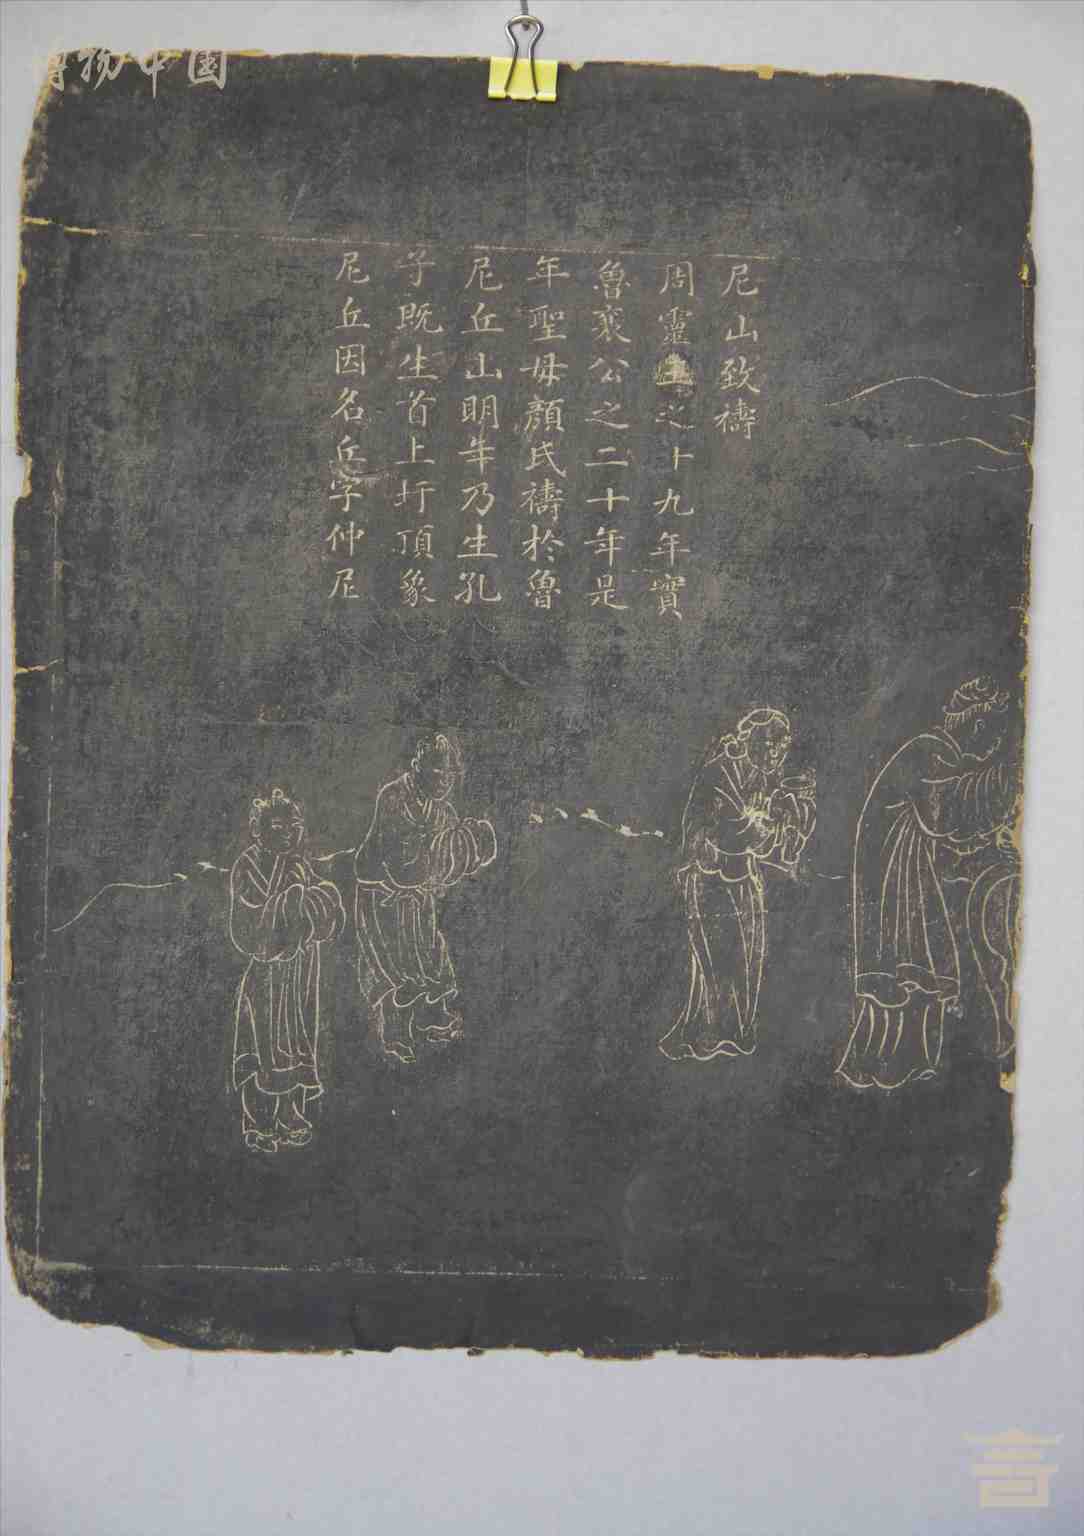 博物中国
尼山致禱
周靈王之十九年實
魯襄公之二十年是
年聖母顏氏禱於魯
尼丘山明年乃生孔
子既生首上圩頂象
尼丘因名丘字仲尼